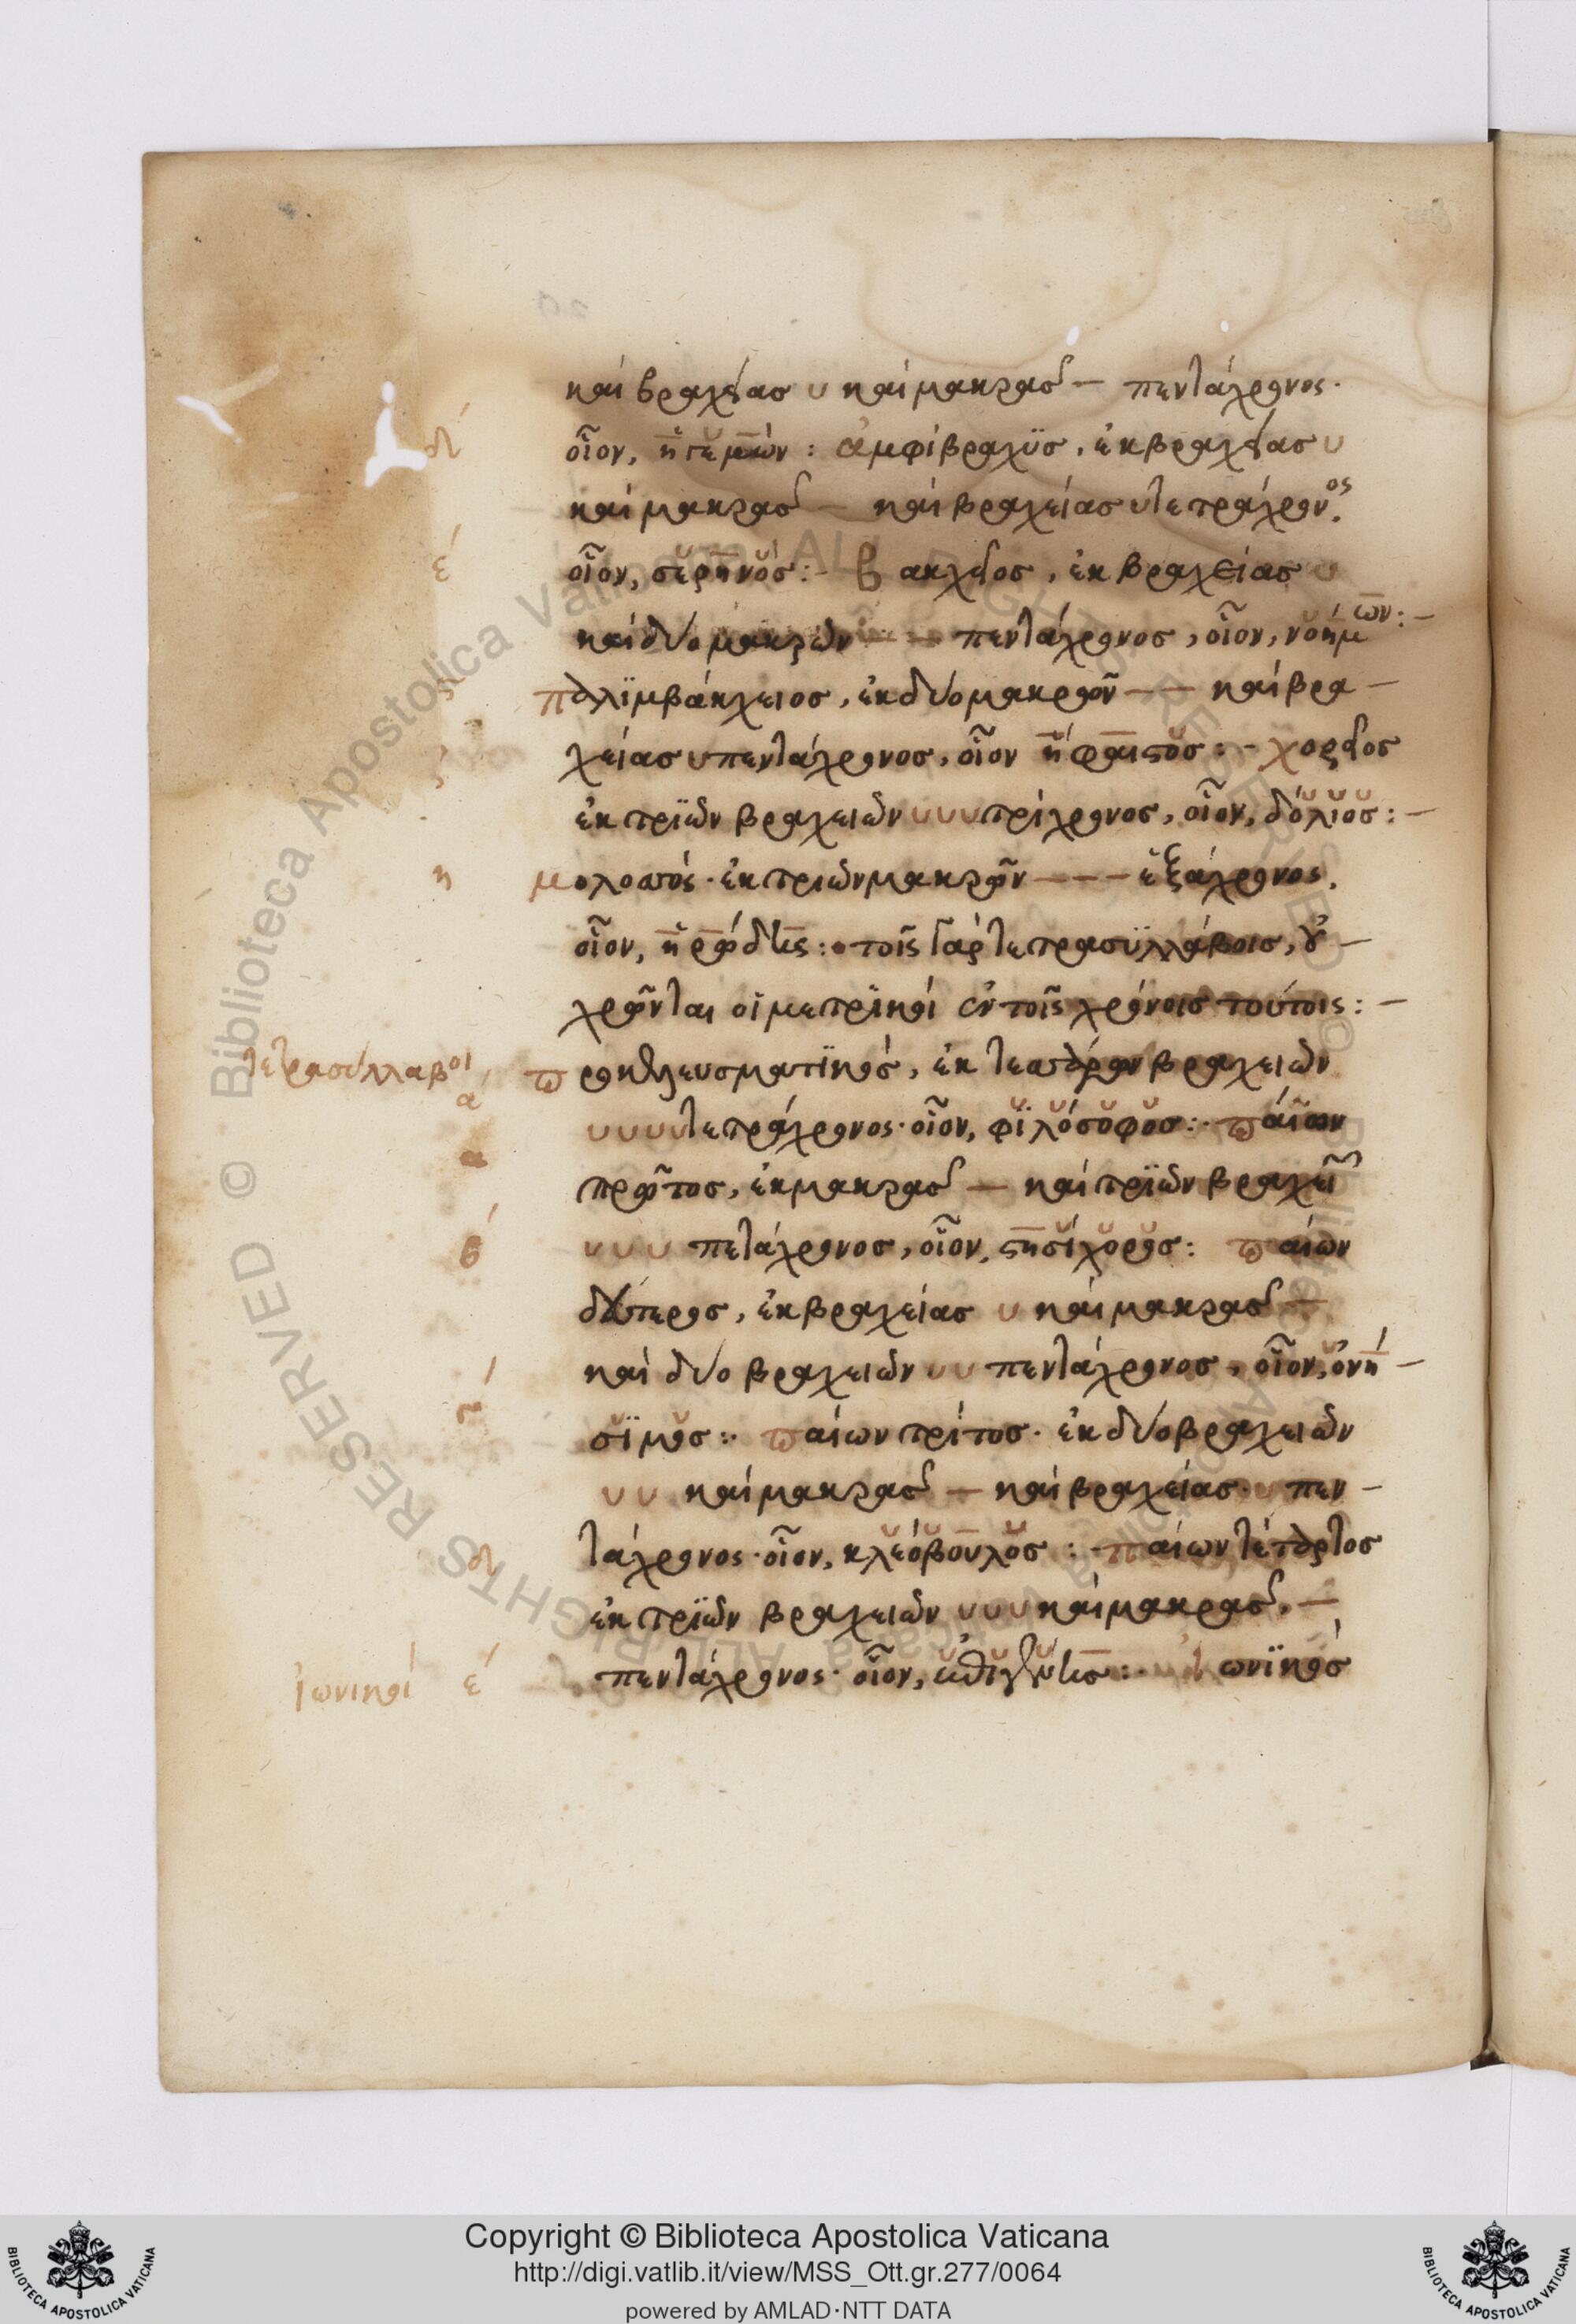 καὶ βραχείας υ καὶ μακρᾶς — πεντάχρονος·
δ´ οἷον, ἡγεμών : ἀμφίβραχυς, ἐκ βραχείας υ
καὶ μακρᾶς — καὶ βραχείας υ τετράχρονος.
ε´ οἷον, σερηνος :- βακχεῖος, ἐκ βραχείας υ
καὶ δύο μακρῶν — — πεντάχρονος, οἷον, νοήμων :-
παλιμβάκχειος, ἐκ δύο μακρῶν — — καὶ βρα —
χείας υ πεντάχρονος, οἷον ἥφαιστος :- χορεῖος
ἐκ τριῶν βραχειῶν υυυ τρίχρονος, οἷον, δόλιος :-
η μολοσσός· ἐκ τριῶν μακρῶν — — — ἑξάχρονος.
οἷον, ἡρώδης : τοῖς γὰρ τετρασυλλάβοις, οὐ —
χρῶνται οἱ μετρικοὶ ἐν τοῖς χρόνοις τούτοις :-
τετρασύλλαβοι α´ προκελευσματικός, ἐκ τεσσάρων βραχειῶν
υυυυ τετράχρονος· οἷον, φιλόσοφος : παίων
α πρῶτος, ἐκ μακρᾶς — καὶ τριῶν βραχειῶν
β´ υυυ πετάχρονος, οἷον, στησίχορος : παίων
δεύτερος, ἐκ βραχείας υ καὶ μακρᾶς —
καὶ δύο βραχειῶν υυ πεντάχρονος, οἷον, ὀνή —
γ´ σιμος : παίων τρίτος· ἐκ δύο βραχειῶν
υυ καὶ μακρᾶς — καὶ βραχείας υ πεν —
δ´ τάχρονος· οἷον, κλεόβουλος :- παίων τέταρτος
ἐκ τριῶν βραχειῶν υυυ καὶ μακρᾶς, —
ἰωνικοί ε´ πεντάχρονος· οἷον, ἐπιγένης : ἰωνικός
Copyright © Biblioteca Apostolica Vaticana
http://digi.vatlib.it/view/MSS_Ott.gr.277/0064
powered by AMLAD·NTT DATA
BIBLIOTECA APOSTOLICA VATICANA
BIBLIOTECA APOSTOLICA VATICANA